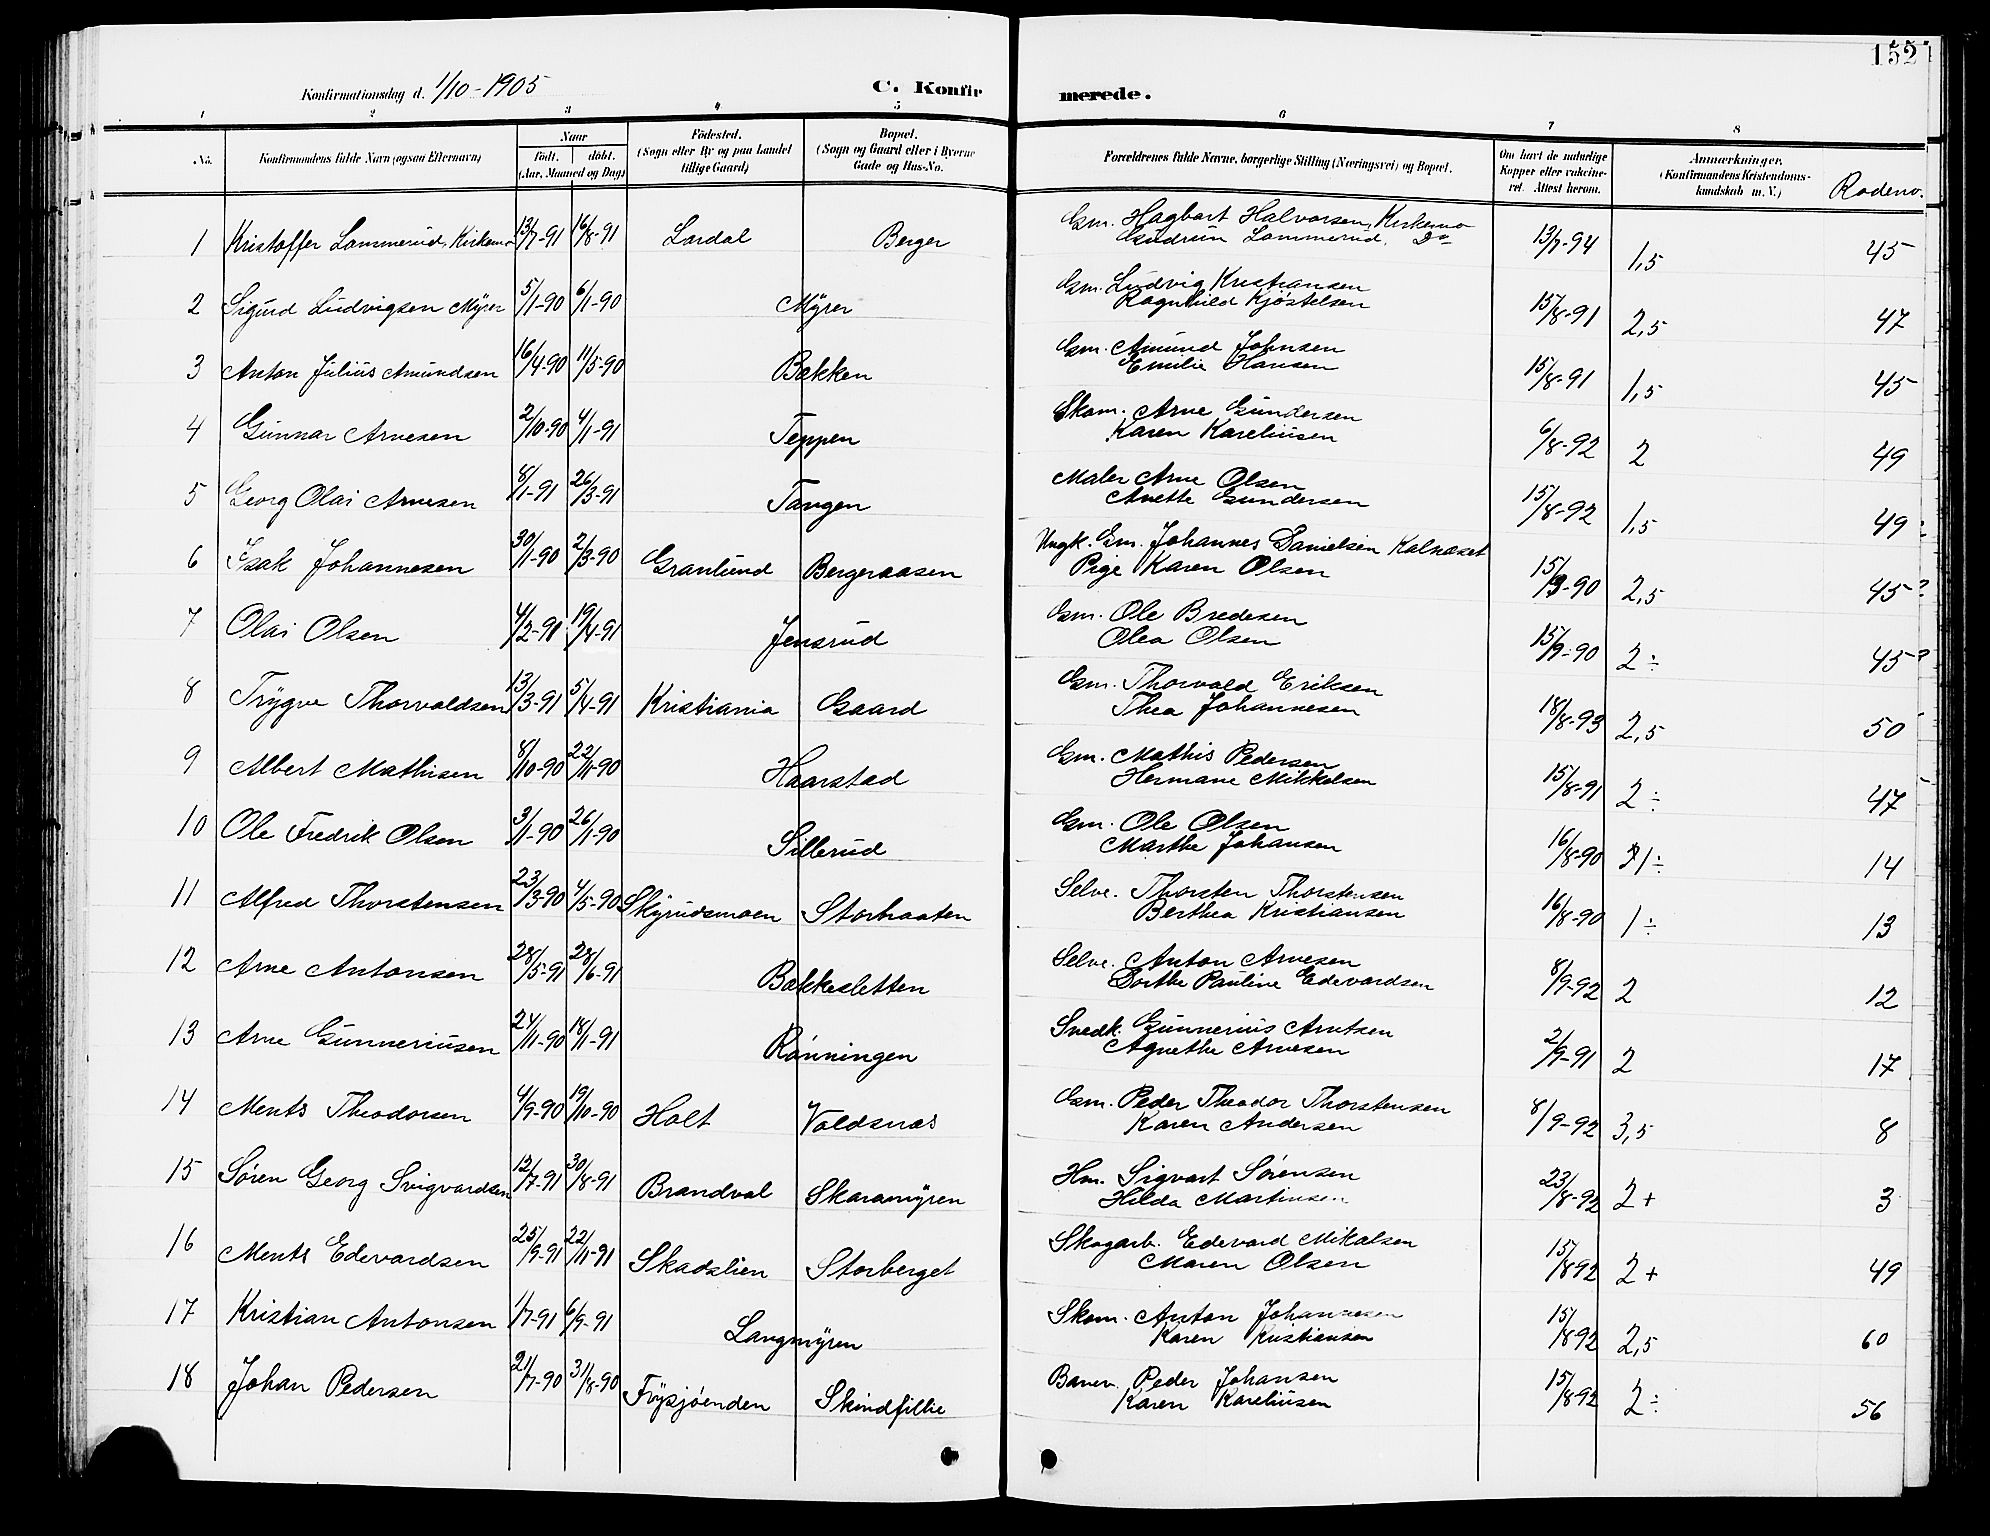 152
Konfirmationsdag d. 1/10-1905 C. Konfirmerede.
1 2 3 4 5 6 7 8
No. Konfirmandens fulde Navn (ogsaa Efternavn) Naar født. døbt. (Aar, Maaned og Dag) Födested. (Sogn eller By og paa Landet tillige Gaard) Bopæl. (Sogn og Gaard eller i Byerne Gade og Hus-No. Forældrenes fulde Navne, borgerlige Stilling (Næringsvei) og Bopæl. Om havt de naturlige Kopper eller vakcineret. Attest herom. Anmærkninger. (Konfirmandens Kristendomskundskab m. V.) Rodeno.
1 Kristoffer Lommerud Kirkemo 13/7-91 16/8-91 Lardal Berger Gm. Hagbart Halvorsen, Kirkemo 13/7-94 1,5 45
Gudrun Lommerud. Do
2 Sigurd Ludvigsen Myrer 5/1-90 6/1-90 Myrer Gm. Ludvig Kristiansen 15/8-91 2,5 47
Ragnhild Kjøstelsen
3 Anton Julius Amundsen 16/4-90 11/5-90 Bakken Gm. Amund Johnsen 15/8-91 1,5 45
Emilie Hansen
4 Gunnar Arnesen 2/10-90 4/1-91 Teppen Skom. Arne Gundersen 6/8-92 2 49
Karen Kareliusen
5 Georg Olai Arnesen 8/1-91 26/3-91 Tangen Maler Arne Olsen 15/8-92 1,5 49
Anette Gundersen
6 Isak Johannesen 30/1-90 2/3-90 Granlund Bergeraasen Ungk. Gm. Johannes Danielsen Kalnæset 15/9-90 2,5 45?
Pige Karen Olsen
7 Olai Olsen 4/2-91 19/4-91 Jensrud Gm. Ole Bredesen 15/9-90 2÷ 45?
Olea Olsen
8 Trygve Thorvaldsen 13/3-91 5/4-91 Kristiania Gaard Gm. Thorvald Eriksen 18/8-93 2,5 50
Thea Johannesen
9 Albert Mathisen 8/10-90 22/11-90 Haarstad Gm. Mathis Pedersen 15/8-91 2÷ 47
Hermane Mikkelsen
10 Ole Fredrik Olsen 3/1-90 26/1-90 Sillerud Gm. Ole Olsen 16/8-90 1÷ 14
Marthe Johansen
11 Alfred Thorstensen 23/3-90 4/5-90 Skyrudsmoen Storhaaten Selve. Thorsten Thorstensen 16/8-90 1÷ 13
Berthea Kristiansen
12 Arne Antonsen 28/5-91 28/6-91 Bakkesletten Selve. Anton Arnesen 8/9-92 2 12
Dorthe Pauline Edevardsen
13 Arne Gunneriusen 24/11-90 18/1-91 Rønningen Snedk. Gunnerius Arntsen 2/9-91 2 17
Agnethe Arnesen
14 Ments Theodorsen 4/9-90 19/10-90 Holt Voldsnæs Gm. Peder Theodor Thorstensen 8/9-92 3,5 8
Karen Andersen
15 Søren Georg Sivgvardsen 12/7-91 30/8-91 Brandval Skaramyren Hm. Sigvart Sørensen 23/8-92 2+ 3
Hilda Martinsen
16 Ments Edevardsen 25/9-91 22/11-91 Skadslien Storberget Skogarb. Edevard Mikalsen 15/8 92 2+ 49
Maren Olsen
17 Kristian Antonsen 1/7-91 6/9-91 Langmyren Skom. Anton Johannesen 15/8 92 2,5 60
Karen Kristiansen
18 Johan Pedersen 21/7-90 31/8-90 Frysjøenden Skindfillie Banev. Peder Johansen 15/8 92 2÷ 56
Karen Kareliusen